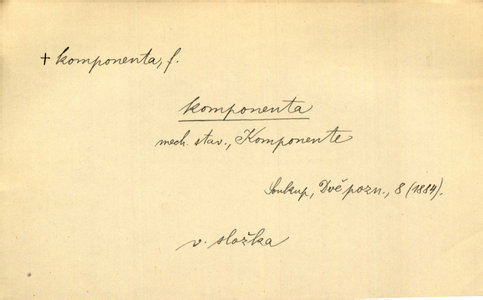 + komponenta, f.
komponenta
mech. stav., Komponente
Soukup, Dvě pozn., 8 (1884).
v. složka